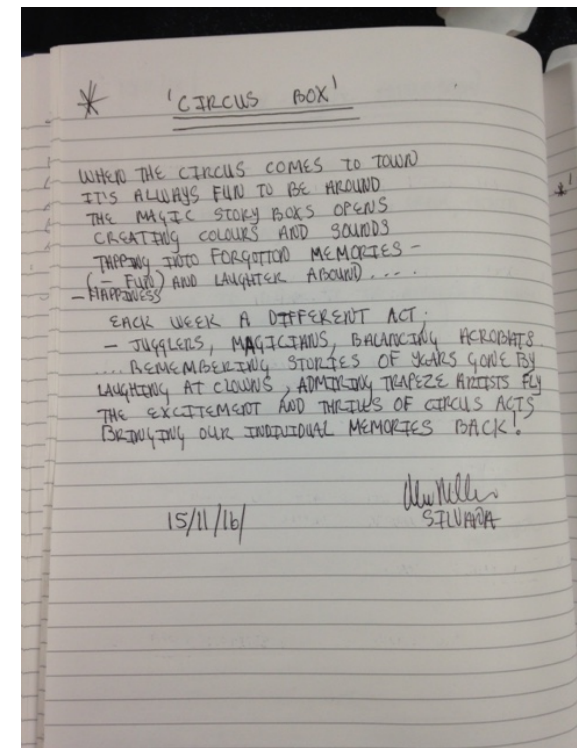 * 'CIRCUS BOX'
WHEN THE CIRCUS COMES TO TOWN
IT'S ALWAYS FUN TO BE AROUND
THE MAGIC STORY BOXS OPENS
CREATING COLOURS AND SOUNDS
TAPPING INTO FORGOTTON MEMORIES -
(- FUN) AND LAUGHTER ABOUND ....
- HAPPINESS
EACK WEEK A DIFFERENT ACT.
- JUGGLERS, MAGICIANS, BALANCING ACROBATS.
.... REMEMBERING STORIES OF YEARS GONE BY
LAUGHING AT CLOWNS, ADMIRING TRAPEZE ARTISTS FLY
THE EXCITEMENT AND THRILLS OF CIRCUS ACTS
BRINGING OUR INDIVIDUAL MEMORIES BACK!
15/11/16/
SILVANA